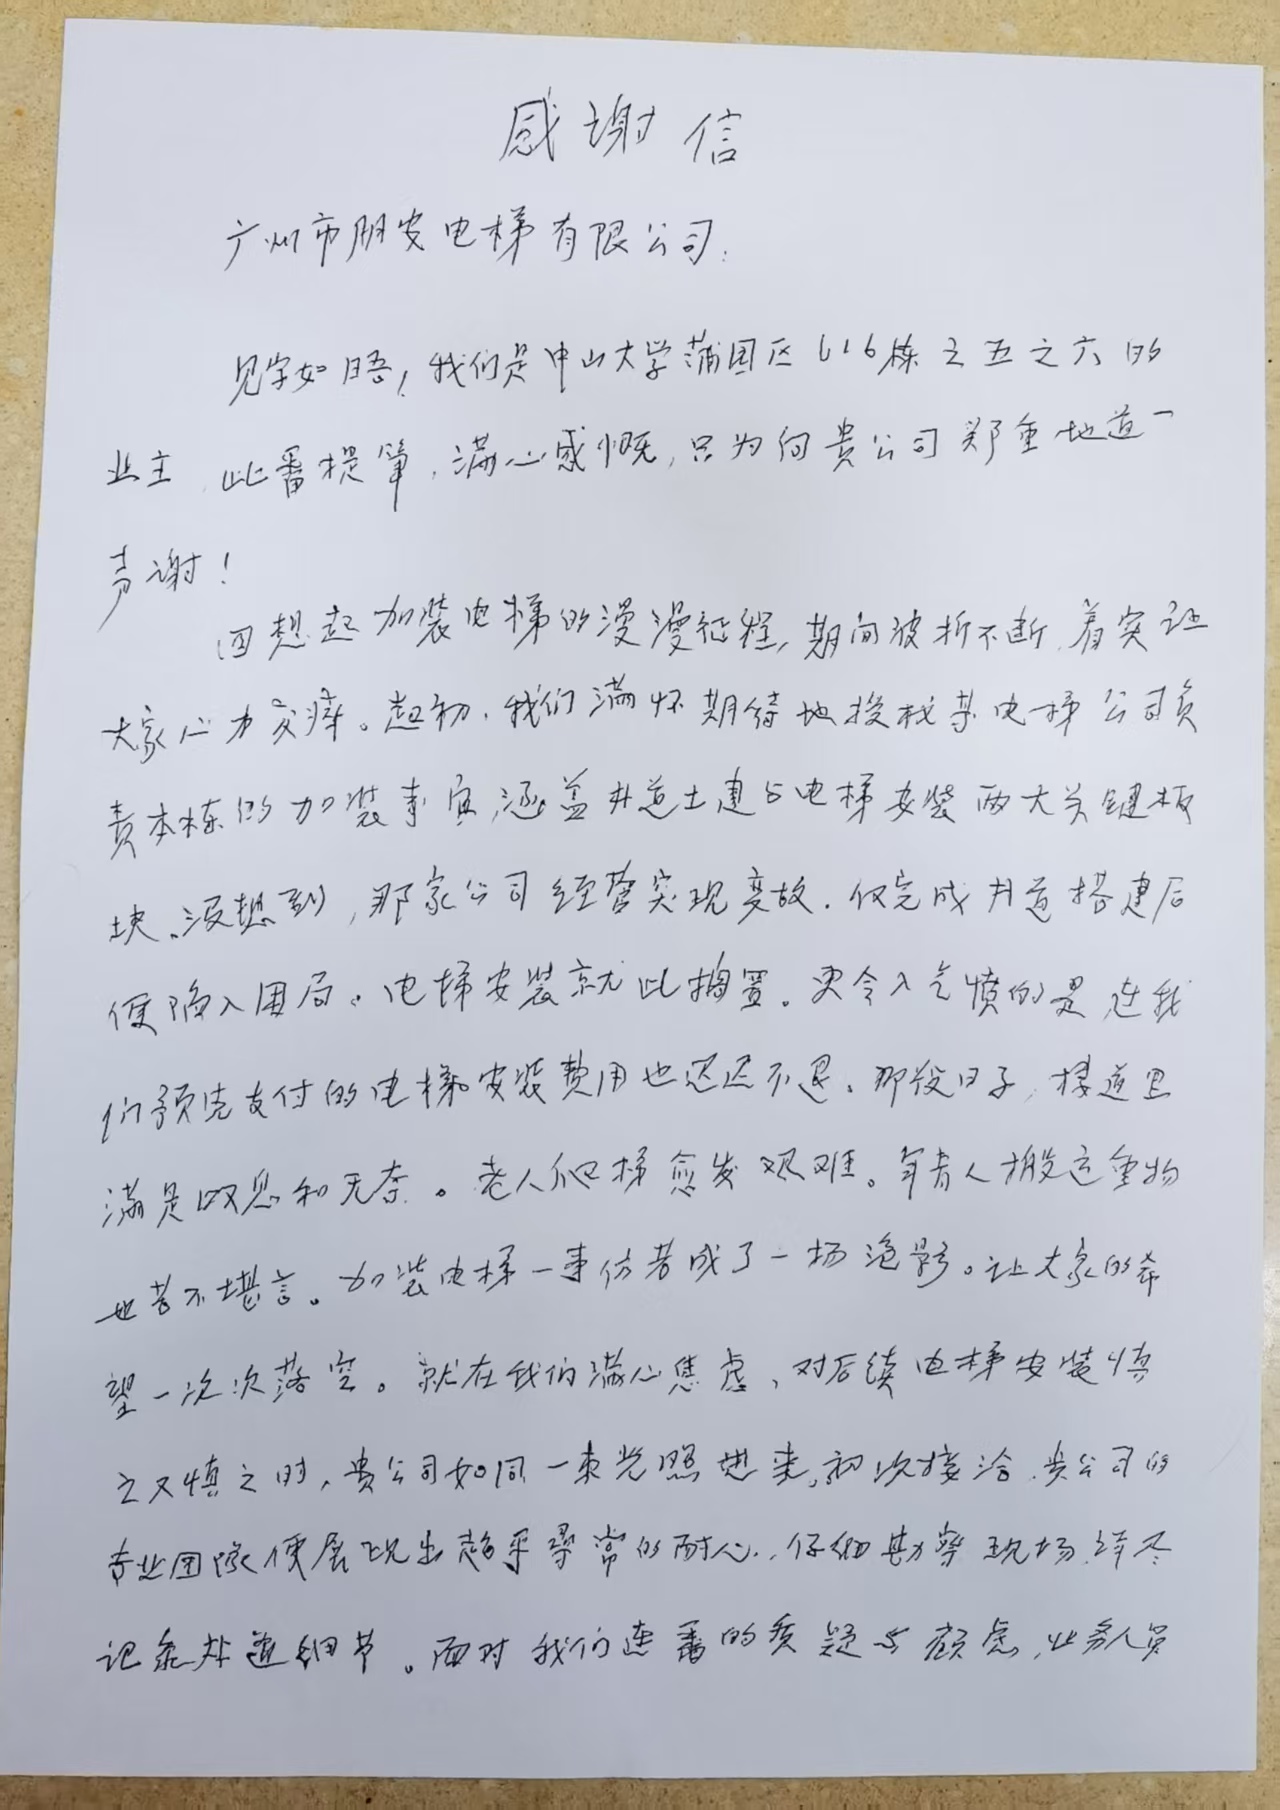 感谢信
广州市朋安电梯有限公司:
见字如晤,我们是中山大学蒲园区616栋之五之六的
业主,此番提笔,满心感慨,只为向贵公司郑重地道一
声谢!
回想起加装电梯的漫漫征程,期间波折不断,着实让
大家心力交瘁。起初,我们满怀期待地授权某电梯公司负
责本栋的加装事宜,涵盖井道土建与电梯安装两大关键板
块。没想到,那家公司经营突现变故,仅完成井道搭建后
便陷入困局。电梯安装就此搁置。更令人气愤的是,连我
们预先支付的电梯安装费用也迟迟不退。那段日子,楼道里
满是叹息和无奈。老人爬梯愈发艰难。年青人搬运重物
也苦不堪言。加装电梯一事仿若成了一场泡影。让大家的希
望一次次落空。就在我们满心焦虑,对后续电梯安装慎
之又慎之时,贵公司如同一束光照进来,初次接洽,贵公司的
专业团队便展现出超乎寻常的耐心,仔细勘察现场,详尽
记录井道细节。面对我们连番的质疑与顾虑,业务人员